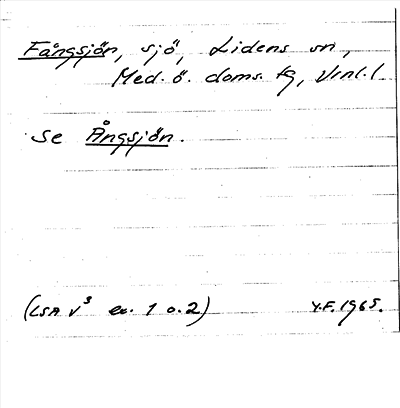 Fångsjön, sjö, Lidens sn,
Med. ö. doms. tg, Vnl. l
se Ångsjön.
(LSA V³ ex. 1 o. 2) Y.F. 1965.